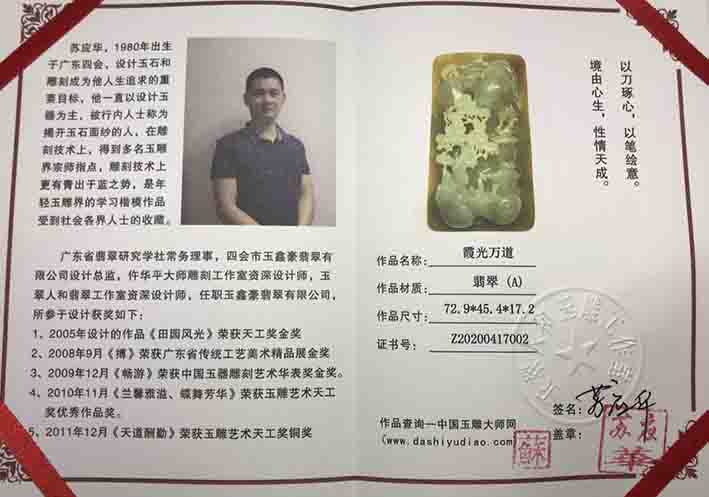 苏应华，1980年出生
于广东四会、设计玉石和
雕刻成为他人生追求的重
要目标，他一直以设计玉
器为主，被行内人士称为
揭开玉石面纱的人，在雕
刻技术上，得到多名玉雕
界宗师指点，雕刻技术上
更有青出于蓝之势，是年
轻玉雕界的学习楷模作品
受到社会各界人士的收藏。
广东省翡翠研究学社常务理事，四会市玉鑫豪翡翠有
限公司设计总监，仵华平大师雕刻工作室资深设计师，玉
翠人和翡翠工作室资深设计师，任职玉鑫豪翡翠有限公司，
所参于设计获奖如下：
1、2005年设计的作品《田园风光》荣获天工奖金奖
2、2008年9月《博》荣获广东省传统工艺美术精品展金奖
3、2009年12月《畅游》荣获中国玉器雕刻艺术华表奖金奖。
4、2010年11月《兰馨雅溢、蝶舞芳华》荣获玉雕艺术天工
奖优秀作品奖。
5、2011年12月《天道酬勤》荣获玉雕艺术天工奖铜奖
以刀琢心，以笔绘意。
境由心生，性情天成。
作品名称：霞光万道
作品材质：翡翠（A）
作品尺寸：72.9*45.4*17.2
证书号：Z20200417002
签名：苏应华
作品查询—中国玉雕大师网
(www.dashiyudiao.com)
盖章：
蘇
苏应
華